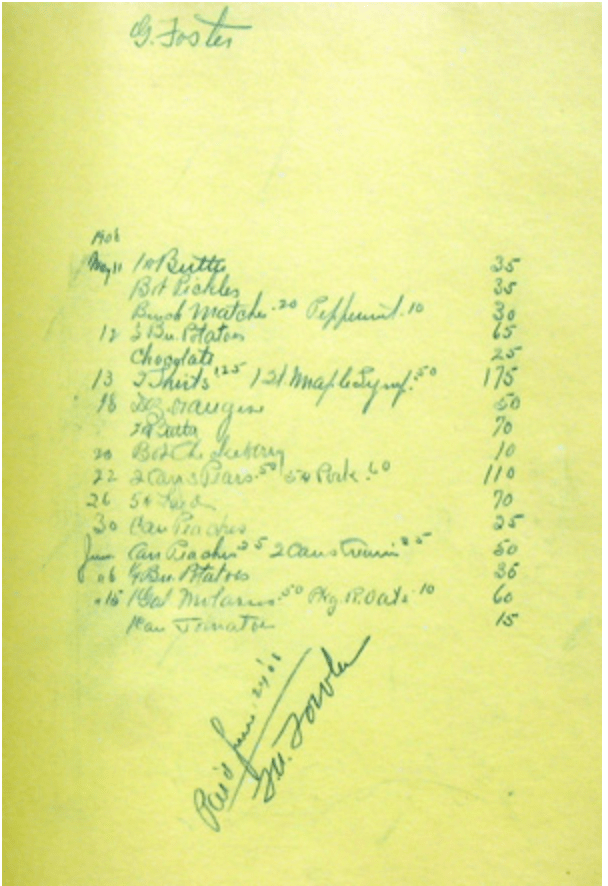 G. Foster
1906
May 11 1# Butter 35
Bot Pickles 35
Bunch Matches .20 Peppermint .10 30
12 ½ Bu. Potatoes 65
Chocolate 25
13 2 Shirts 1.25 1 qt Maple Syrup .50 175
18 Doz oranges 50
2# Butter 70
20 Bot Checkerberry 10
22 2 Cans Pears .50 5# Pork .60 110
26 5# 70
30 Can Peaches 25
June Can Peaches 25 2 Cans 25 50
06 Bu Potatoes 35
15 1 Gal Molasses .50 Pkg R. Oats .10 60
1 Can Tomatoes 15
Pai'd June 24 '06
Fowler